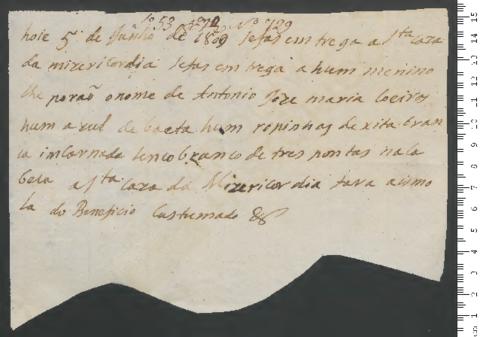 fo 53 No 729
hoie 5 de Junho de 1809 se fas em trega a Sta Caza
da mizericordia se fas em trega a hum menino
lhe poraõ o nome de Antonio Joze maria coeiros
hum azul de baeta hum ropinhas de xita bran
ca imcarnada lenco branco de tres pontas na ca
beca a Sta Caza da Mizericordia fara a ismo
la do Beneficio Custumado